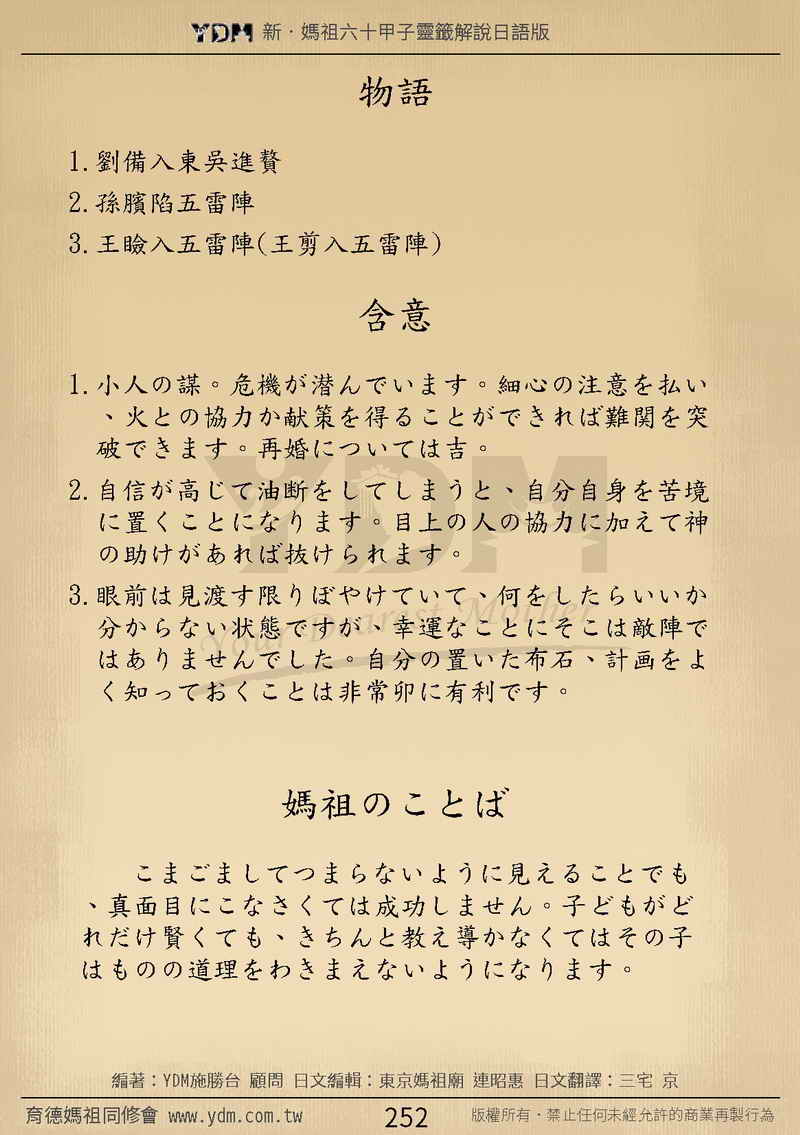 YDM 新．媽祖六十甲子靈籤解說日語版
物語
1. 劉備入東吳進贅
2. 孫臏陷五雷陣
3. 王瞼入五雷陣(王剪入五雷陣)
含意
1. 小人の謀。危機が潜んでいます。細心の注意を払い
、火との協力か献策を得ることができれば難関を突
破できます。再婚については吉。
2. 自信が高じて油断をしてしまうと、自分自身を苦境
に置くことになります。目上の人の協力に加えて神
の助けがあれば抜けられます。
3. 眼前は見渡す限りぼやけていて、何をしたらいいか
分からない状態ですが、幸運なことにそこは敵陣で
はありませんでした。自分の置いた布石、計画をよ
く知っておくことは非常卯に有利です。
YDM
Your Dearest Mother
媽祖のことば
こまごましてつまらないように見えることでも
、真面目にこなさくては成功しません。子どもがど
れだけ賢くても、きちんと教え導かなくてはその子
はものの道理をわきまえないようになります。
編著：YDM施勝台 顧問 日文編輯：東京媽祖廟 連昭惠 日文翻譯：三宅 京
育德媽祖同修會 www.ydm.com.tw 252 版權所有．禁止任何未經允許的商業再製行為